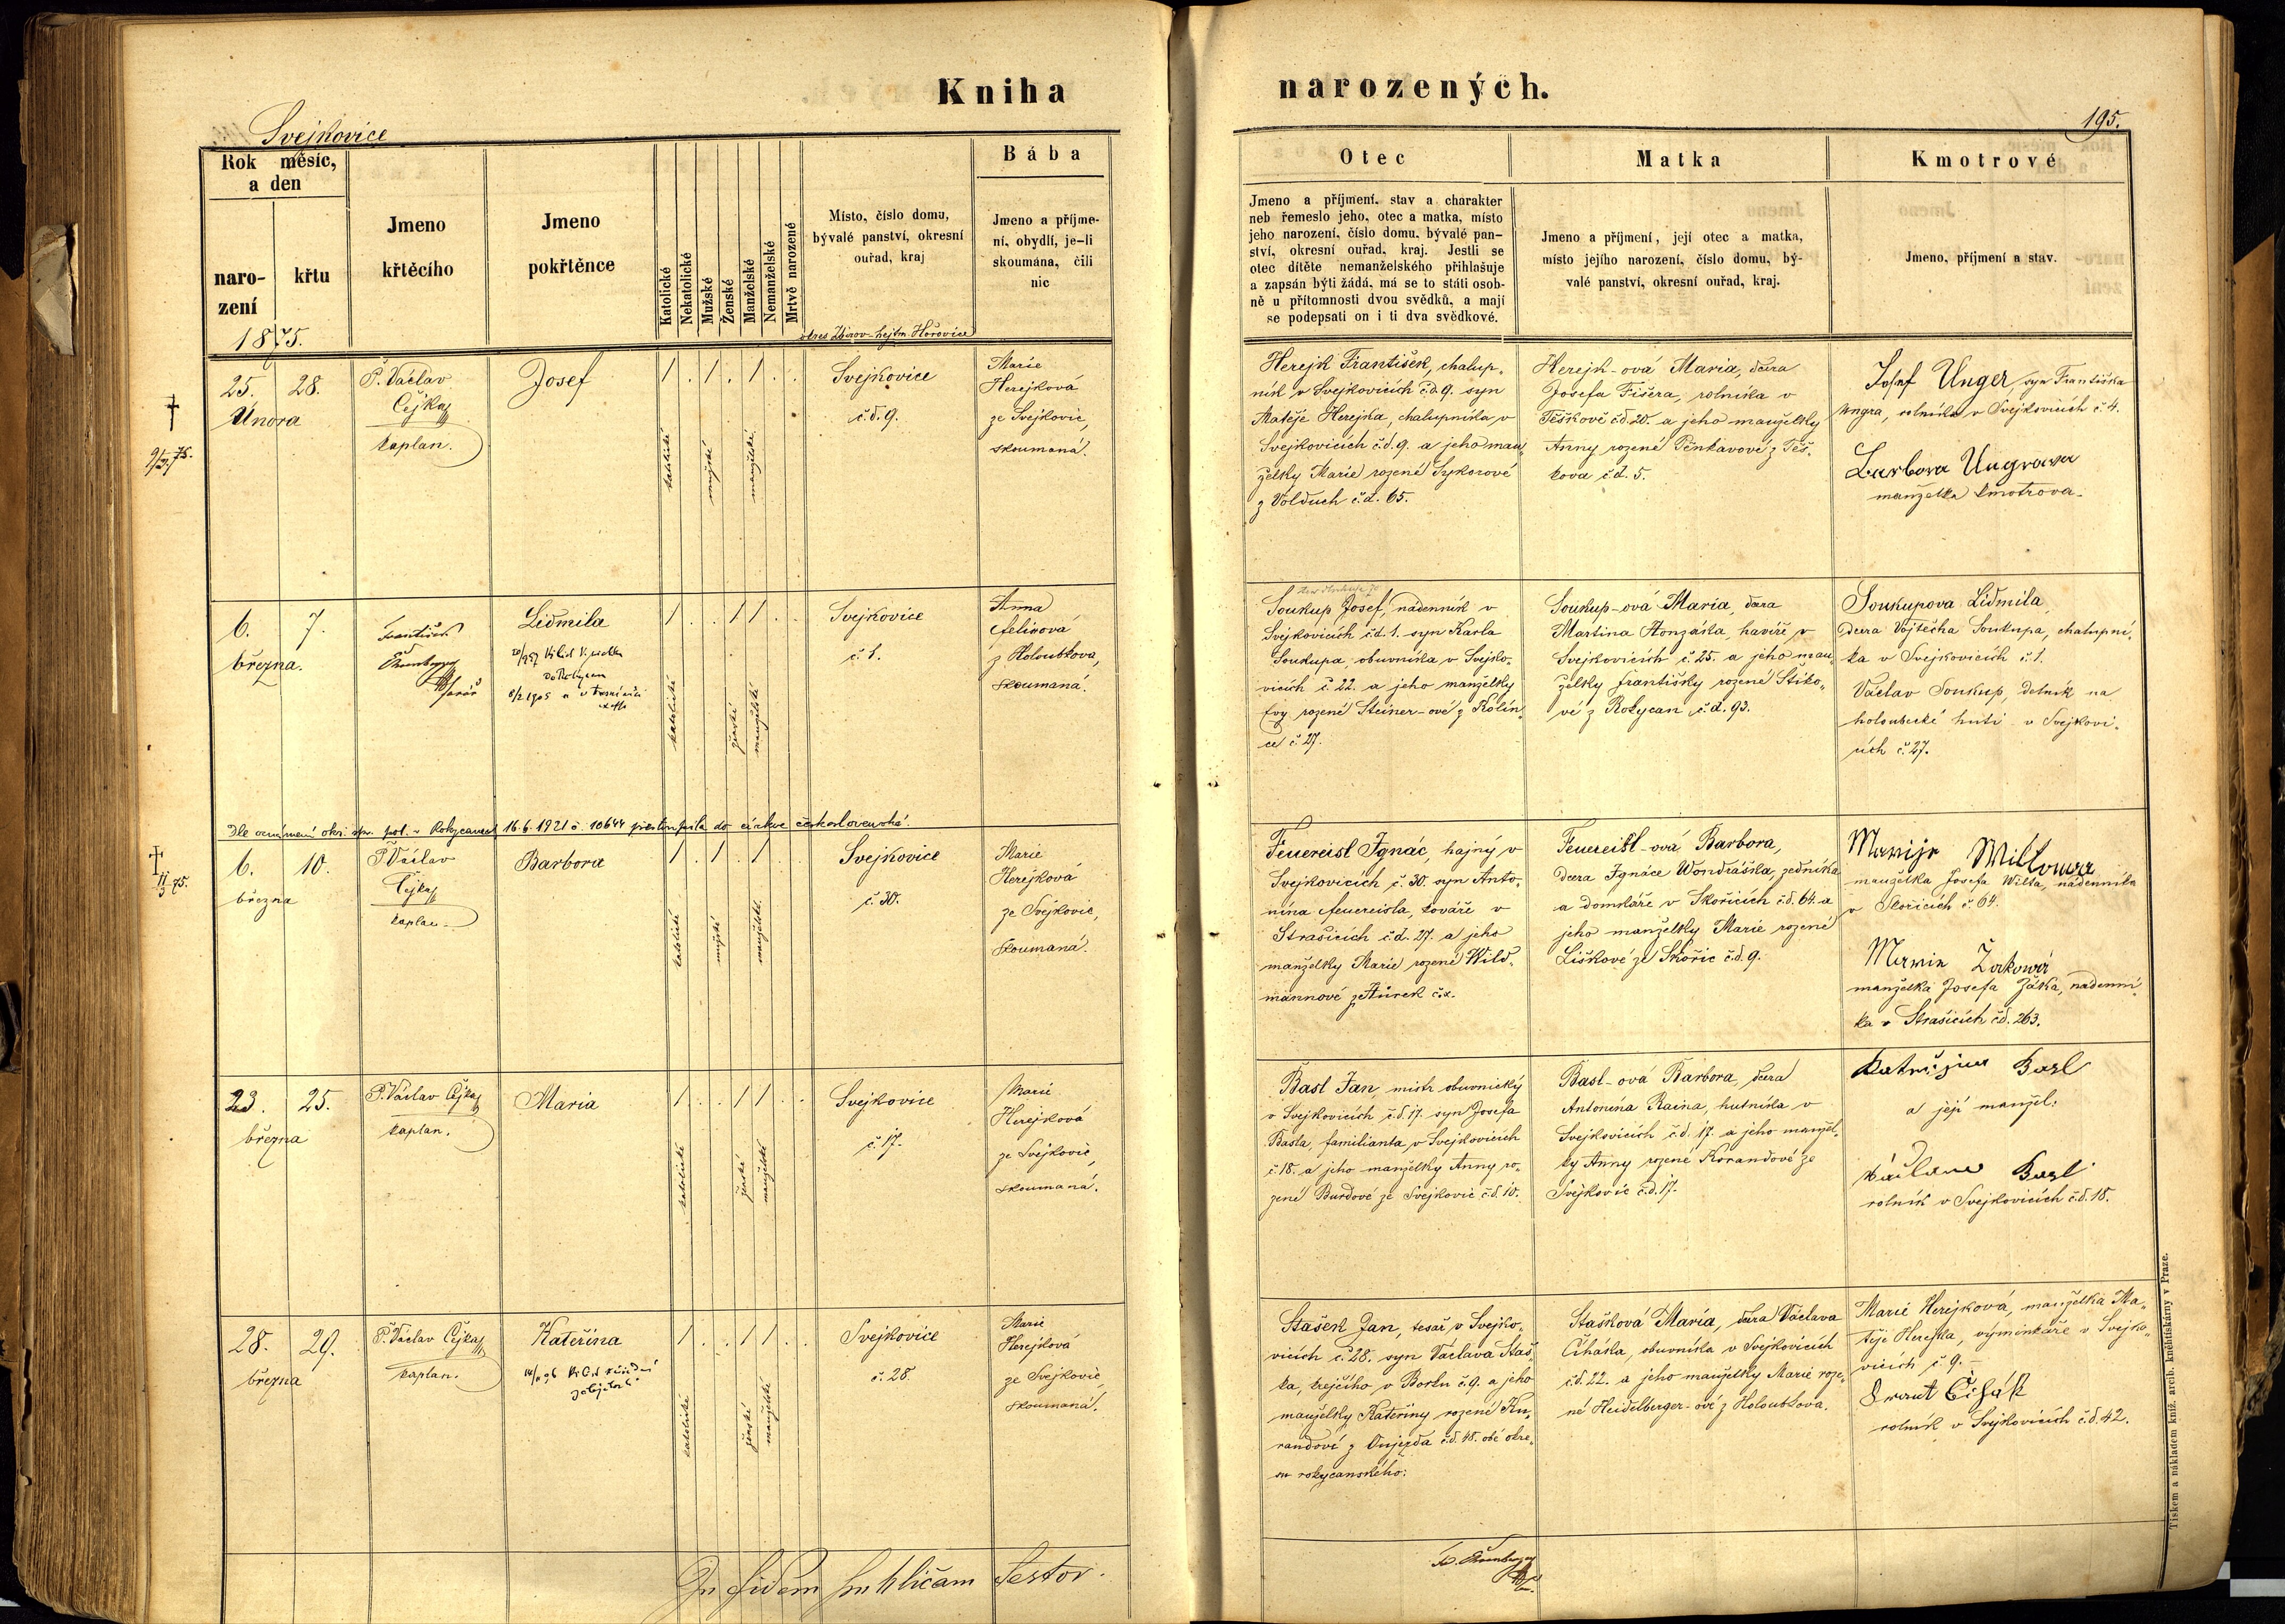 Kniha narozených.
Svejkovice
195.
Rok měsíc,
a den
naro-
zení
křtu
1875.
Jmeno
křtěcího
Jmeno
pokřtěnce
Katolické
Nekatolické
Mužské
Ženské
Manželské
Nemanželské
Mrtvě narozené
Místo, číslo domu,
bývalé panství, okresní
ouřad, kraj
okres Zbirov - hejtm. Hořovice
Bába
Jmeno a příjme-
ní, obydlí, je-li
skoumána, čili
nic
Otec
Jmeno a příjmení, stav a charakter
neb řemeslo jeho, otec a matka, místo
jeho narození, číslo domu, bývalé pan-
ství, okresní ouřad, kraj. Jestli se
otec dítěte nemanželského přihlašuje
a zapsán býti žádá, má se to státi osob-
ně u přítomnosti dvou svědků, a mají
se podepsati on i ti dva svědkové.
Matka
Jmeno a příjmení, její otec a matka,
místo jejího narození, číslo domu, bý-
valé panství, okresní ouřad, kraj.
Kmotrové
Jmeno, příjmení a stav.
25. 28.
Února
P. Václav
Čejka
kaplan.
Josef
katolické
mužské
manželské
Svejkovice
č.d. 9.
Marie
Herejková
ze Svejkovic,
skoumaná.
Herejk František, chalup-
ník v Svejkovicích č.d. 9. syn
Matěje Herejka, chalupníka v
Svejkovicích č.d. 9. a jeho man-
želky Marie rozené Sykorové
z Volduch č.d. 65.
Herejk-ová Maria, dcera
Josefa Fišera, rolníka v
Těškově č.d. 20. a jeho manželky
Anny rozené Pěnkavové z Těš-
kova č.d. 5.
Josef Unger, syn Františka
Ungra, rolníka v Svejkovicích č. 4.
Barbora Ungrova
manželka kmotrova.
6. 7.
března.
František
farář
Lidmila
katolické
ženské
manželské
Svejkovice
č. 1.
Anna
z Holoubkova,
skoumaná.
Soukup Josef, nádenník v
Svejkovicích č.d. 1. syn Karla
Soukupa, obuvníka v Svejko-
vicích č. 22. a jeho manželky
Evy rozené Steiner-ové z Kolín-
ce č. 27.
Soukup-ová Maria, dcera
Martina Honzáka, havíře v
Svejkovicích č. 25. a jeho man-
želky Františky rozené Stiko-
vé z Rokycan č.d. 93.
Soukupova Lidmila,
dcera Vojtěcha Soukupa, chalupní-
ka v Svejkovicích č. 1.
Václav Soukup, dělník na
holoubecké huti v Svejkovi-
cích č. 27.
Dle oznámení okr. spr. pol. v Rokycanech 16.6.1921 č. 10644 přestoupila do církve československé.
6. 10.
března
P. Václav
Čejka
kaplan.
Barbora
katolické
mužské
manželské
Svejkovice
č. 30.
Marie
Herejková
ze Svejkovic,
skoumaná.
Feuereisl Ignác, hajný v
Svejkovicích č. 30. syn Anto-
nína Feuereisla, kováře v
Strašicích č.d. 27. a jeho
manželky Marie rozené Wild-
mannové
Feuereisl-ová Barbora,
dcera Ignáce Wondráška, zedníka
a domkáře v Skořicích č.d. 64. a
jeho manželky Marie rozené
Liškové ze Skořic č.d. 9.
manželka Josefa Wilta, nádenníka
v Skořicích č. 64.
manželka Josefa Žáka, nádenní-
ka v Strašicích č.d. 263.
23. 25.
března
P. Václav Čejka
kaplan.
Maria
katolické
ženské
manželské
Svejkovice
č. 17.
Marie
Herejková
ze Svejkovic,
skoumaná.
Basl Jan, mistr obuvnický
v Svejkovicích č.d. 17. syn Josefa
Basla, familianta v Svejkovicích
č. 18. a jeho manželky Anny ro-
zené Burdové ze Svejkovic č.d. 10.
Basl-ová Barbora, dcera
Antonína Raina, hutníka v
Svejkovicích č.d. 17. a jeho manžel-
ky Anny rozené Korandové ze
Svejkovic č.d. 17.
Basl
a její manžel:
Basl
rolník v Svejkovicích č.d. 18.
28. 29.
března
P. Václav Čejka
kaplan.
Kateřina
katolické
ženské
manželské
Svejkovice
č. 28.
Marie
Herejková
ze Svejkovic,
skoumaná.
Stašek Jan, tesař v Svejko-
vicích č. 28. syn Václava Staš-
ka, krejčího v Borku č. 9. a jeho
manželky Kateřiny rozené Ku-
randové z Oujezda č.d. 48. obé okre-
su rokycanského:
Stašková Maria, dcera Václava
Čiháka, obuvníka v Svejkovicích
č.d. 22. a jeho manželky Marie roze-
né Heidelberger-ové z Holoubkova.
Marie Herejková, manželka Ma-
těje Herejka, výměnkáře v Svejko-
vicích č. 9.
Čihák
rolník v Svejkovicích č.d. 42.
In fidem publicam
Tiskem a nákladem kníž. arcib. knihtiskárny v Praze.